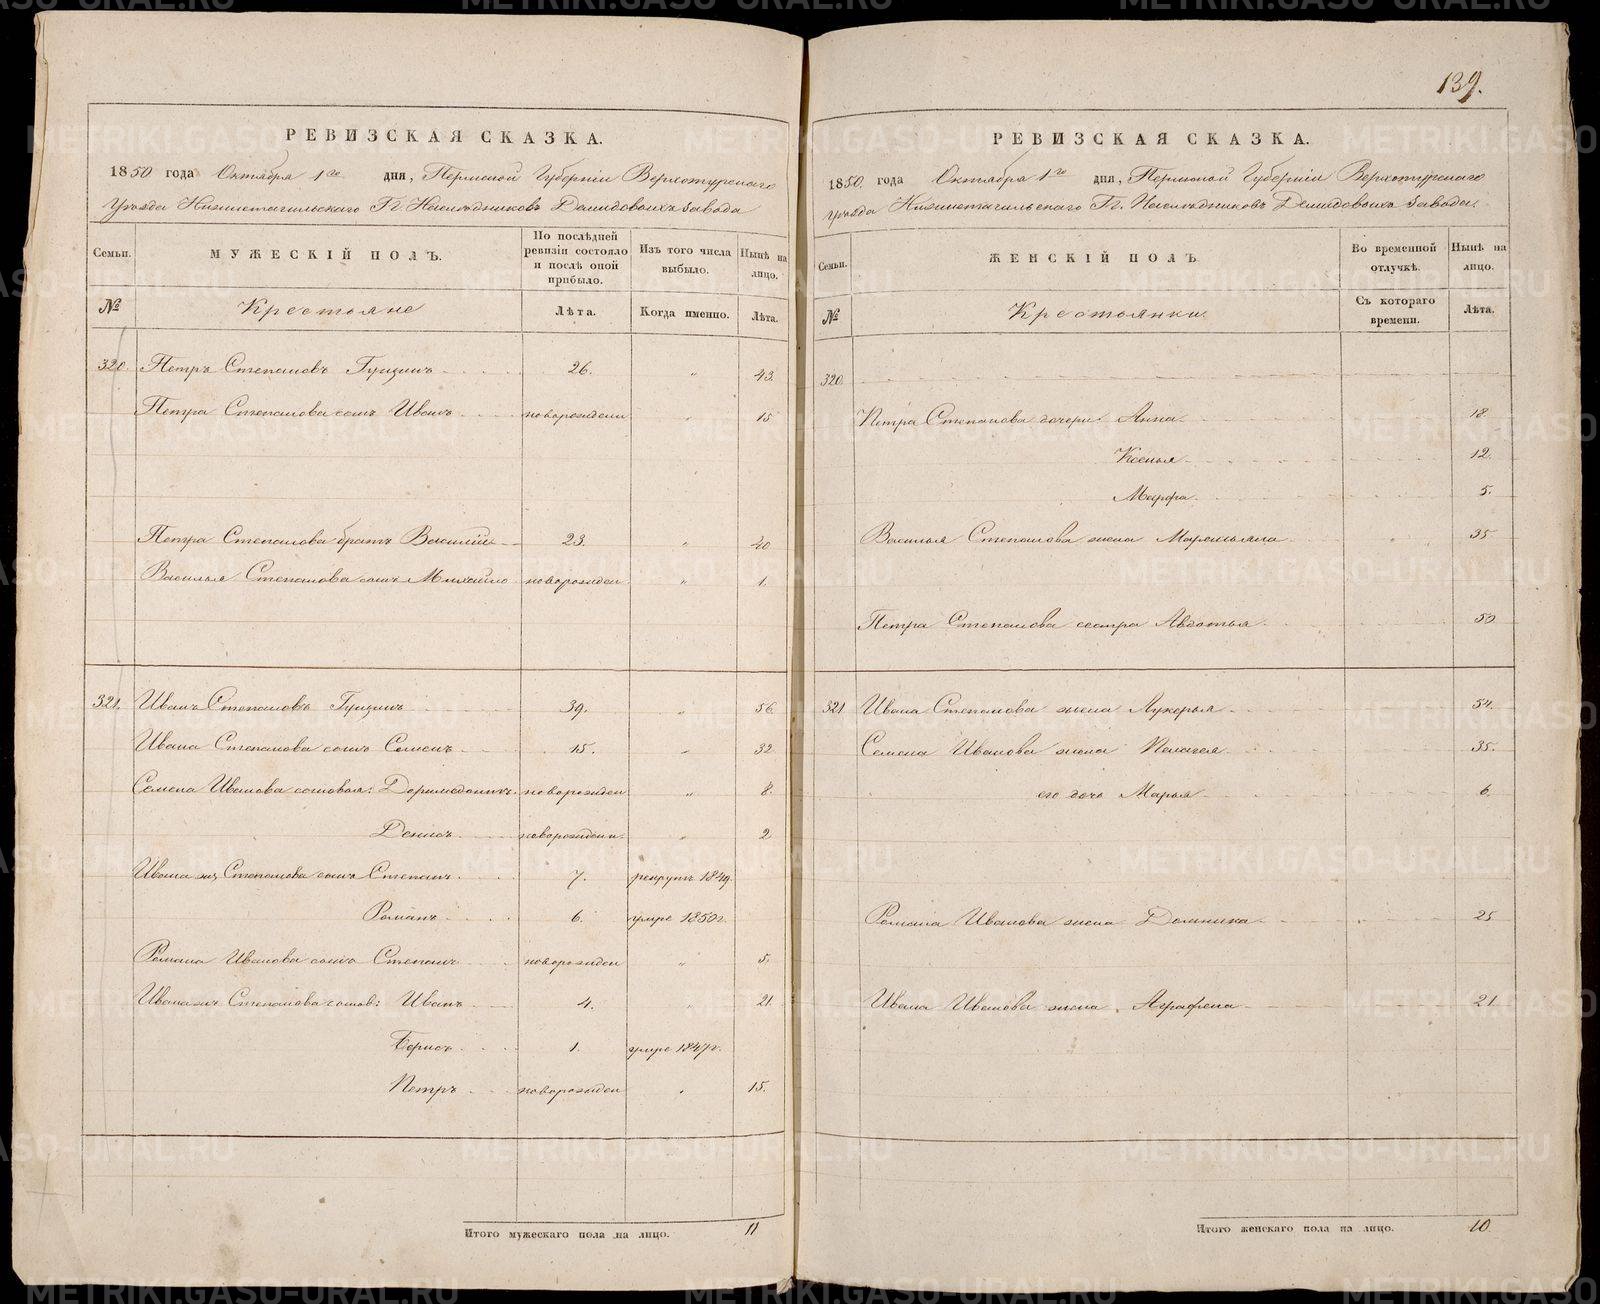 139.
РЕВИЗСКАЯ СКАЗКА.
1850 года Октября 1го дня, Пермской Губерніи Верхотурскаго
Уѣзда Нижнетагильскаго Гг. Наслѣдниковъ Демидовыхъ завода
Семьи.
МУЖЕСКІЙ ПОЛЪ.
По послѣдней ревизіи состояло и послѣ оной прибыло.
Изъ того числа выбыло.
Нынѣ на лицо.
№
Крестьяне
Лѣта.
Когда именно.
Лѣта.
320. Петръ Степановъ 26. „ 43.
Петра Степанова сынъ Иванъ новорожденн „ 15
Петра Степанова братъ Василій 23. „ 40
Василья Степанова сынъ Михайло новорожден „ 1.
321. Иванъ Степановъ 39. „ 56
Ивана Степанова сынъ Семенъ 15. „ 32
Семена Иванова сыновья: Доримедонтъ новорожден „ 8.
Денисъ новорожденн. „ 2
Ивана же Степанова сынъ Степанъ 7. рекрутъ 1849.
Романъ 6. умре 1850г.
Романа Иванова сынъ Степанъ новорожден „ 5.
Ивана же Степанова сынов: Иванъ 4. „ 21.
Борисъ 1. умре 1847г.
Петръ новорожден „ 15.
Итого мужескаго пола на лицо. 11
РЕВИЗСКАЯ СКАЗКА.
1850 года Октября 1го дня, Пермской Губерніи Верхотурскаго
Уѣзда Нижнетагильскаго Гг. Наслѣдниковъ Демидовыхъ завода.
Семьи.
ЖЕНСКІЙ ПОЛЪ
Во временной отлучкѣ.
Нынѣ на лицо.
№
Крестьянки
Съ котораго времени.
Лѣта.
320.
Петра Степанова дочери: Анна 18.
Ксенья 12.
Марфа 5.
Василья Степанова жена Маремьяна 35
Петра Степанова сестра Авдотья 50
321 Ивана Степанова жена Лукерья 54.
Семена Иванова жена Пелагея 35.
его дочь Марья 6.
Романа Иванова жена Домника 25
Ивана Иванова жена Аграфена 21.
Итого женскаго пола на лицо. 10.
METRIKI.GASO-URAL.RU